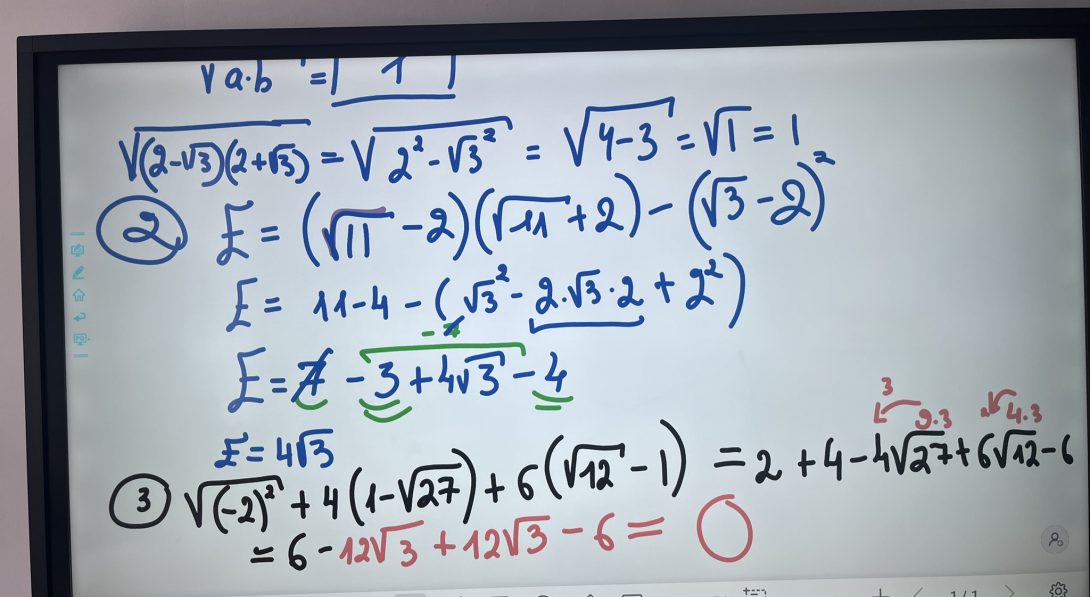 √a·b = 1
√(2-√3)(2+√3) = √2²-√3² = √4-3 = √1 = 1
2 E = (√11 - 2)(√11 + 2) - (√3 - 2)²
E = 11-4 - (√3² - 2·√3·2 + 2²)
-7
E = 7 - 3 + 4√3 - 4
E = 4√3
3 9·3 4·3
3 √(-2)² + 4(1-√27) + 6(√12 - 1) = 2 + 4 - 4√27 + 6√12 - 6
= 6 - 12√3 + 12√3 - 6 = 0
1/1